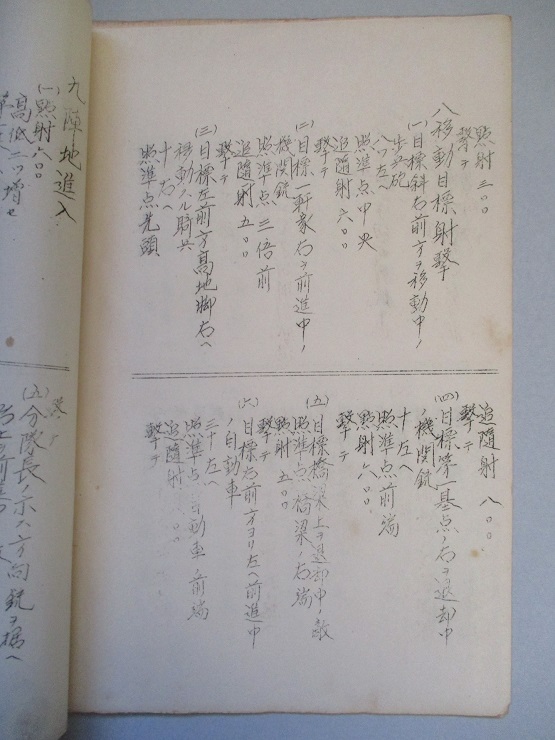 點射三〇〇
撃テ
八移動目標射撃
(一)目標斜右前方ヲ移動中ノ
歩兵砲
八ツ左ヘ
照準点中央
追随射六〇〇
撃テ
(二)目標一軒家右ヲ前進中ノ
機関銃
照準点三倍前
追随射五〇〇
撃テ
(三)目標左前方高地脚右ヘ
移動スル騎兵
十右ヘ
照準点先頭
追随射八〇〇
撃テ
(四)目標第一基点ノ右ヲ退却中
ノ機関銃
十左ヘ
照準点前端
點射六〇〇
撃テ
(五)目標橋梁上ヲ退却中ノ敵
照準点橋梁ノ右端
點射五〇〇
撃テ
(六)目標右前方ヨリ左ヘ前進中
ノ自動車
三十左ヘ
照準点自動車ノ前端
追随射 〇〇
撃テ
九陣地進入
(一)點射六〇〇
高低二ツ増セ
(五)分隊長ノ示ス方向銃ヲ据ヘ